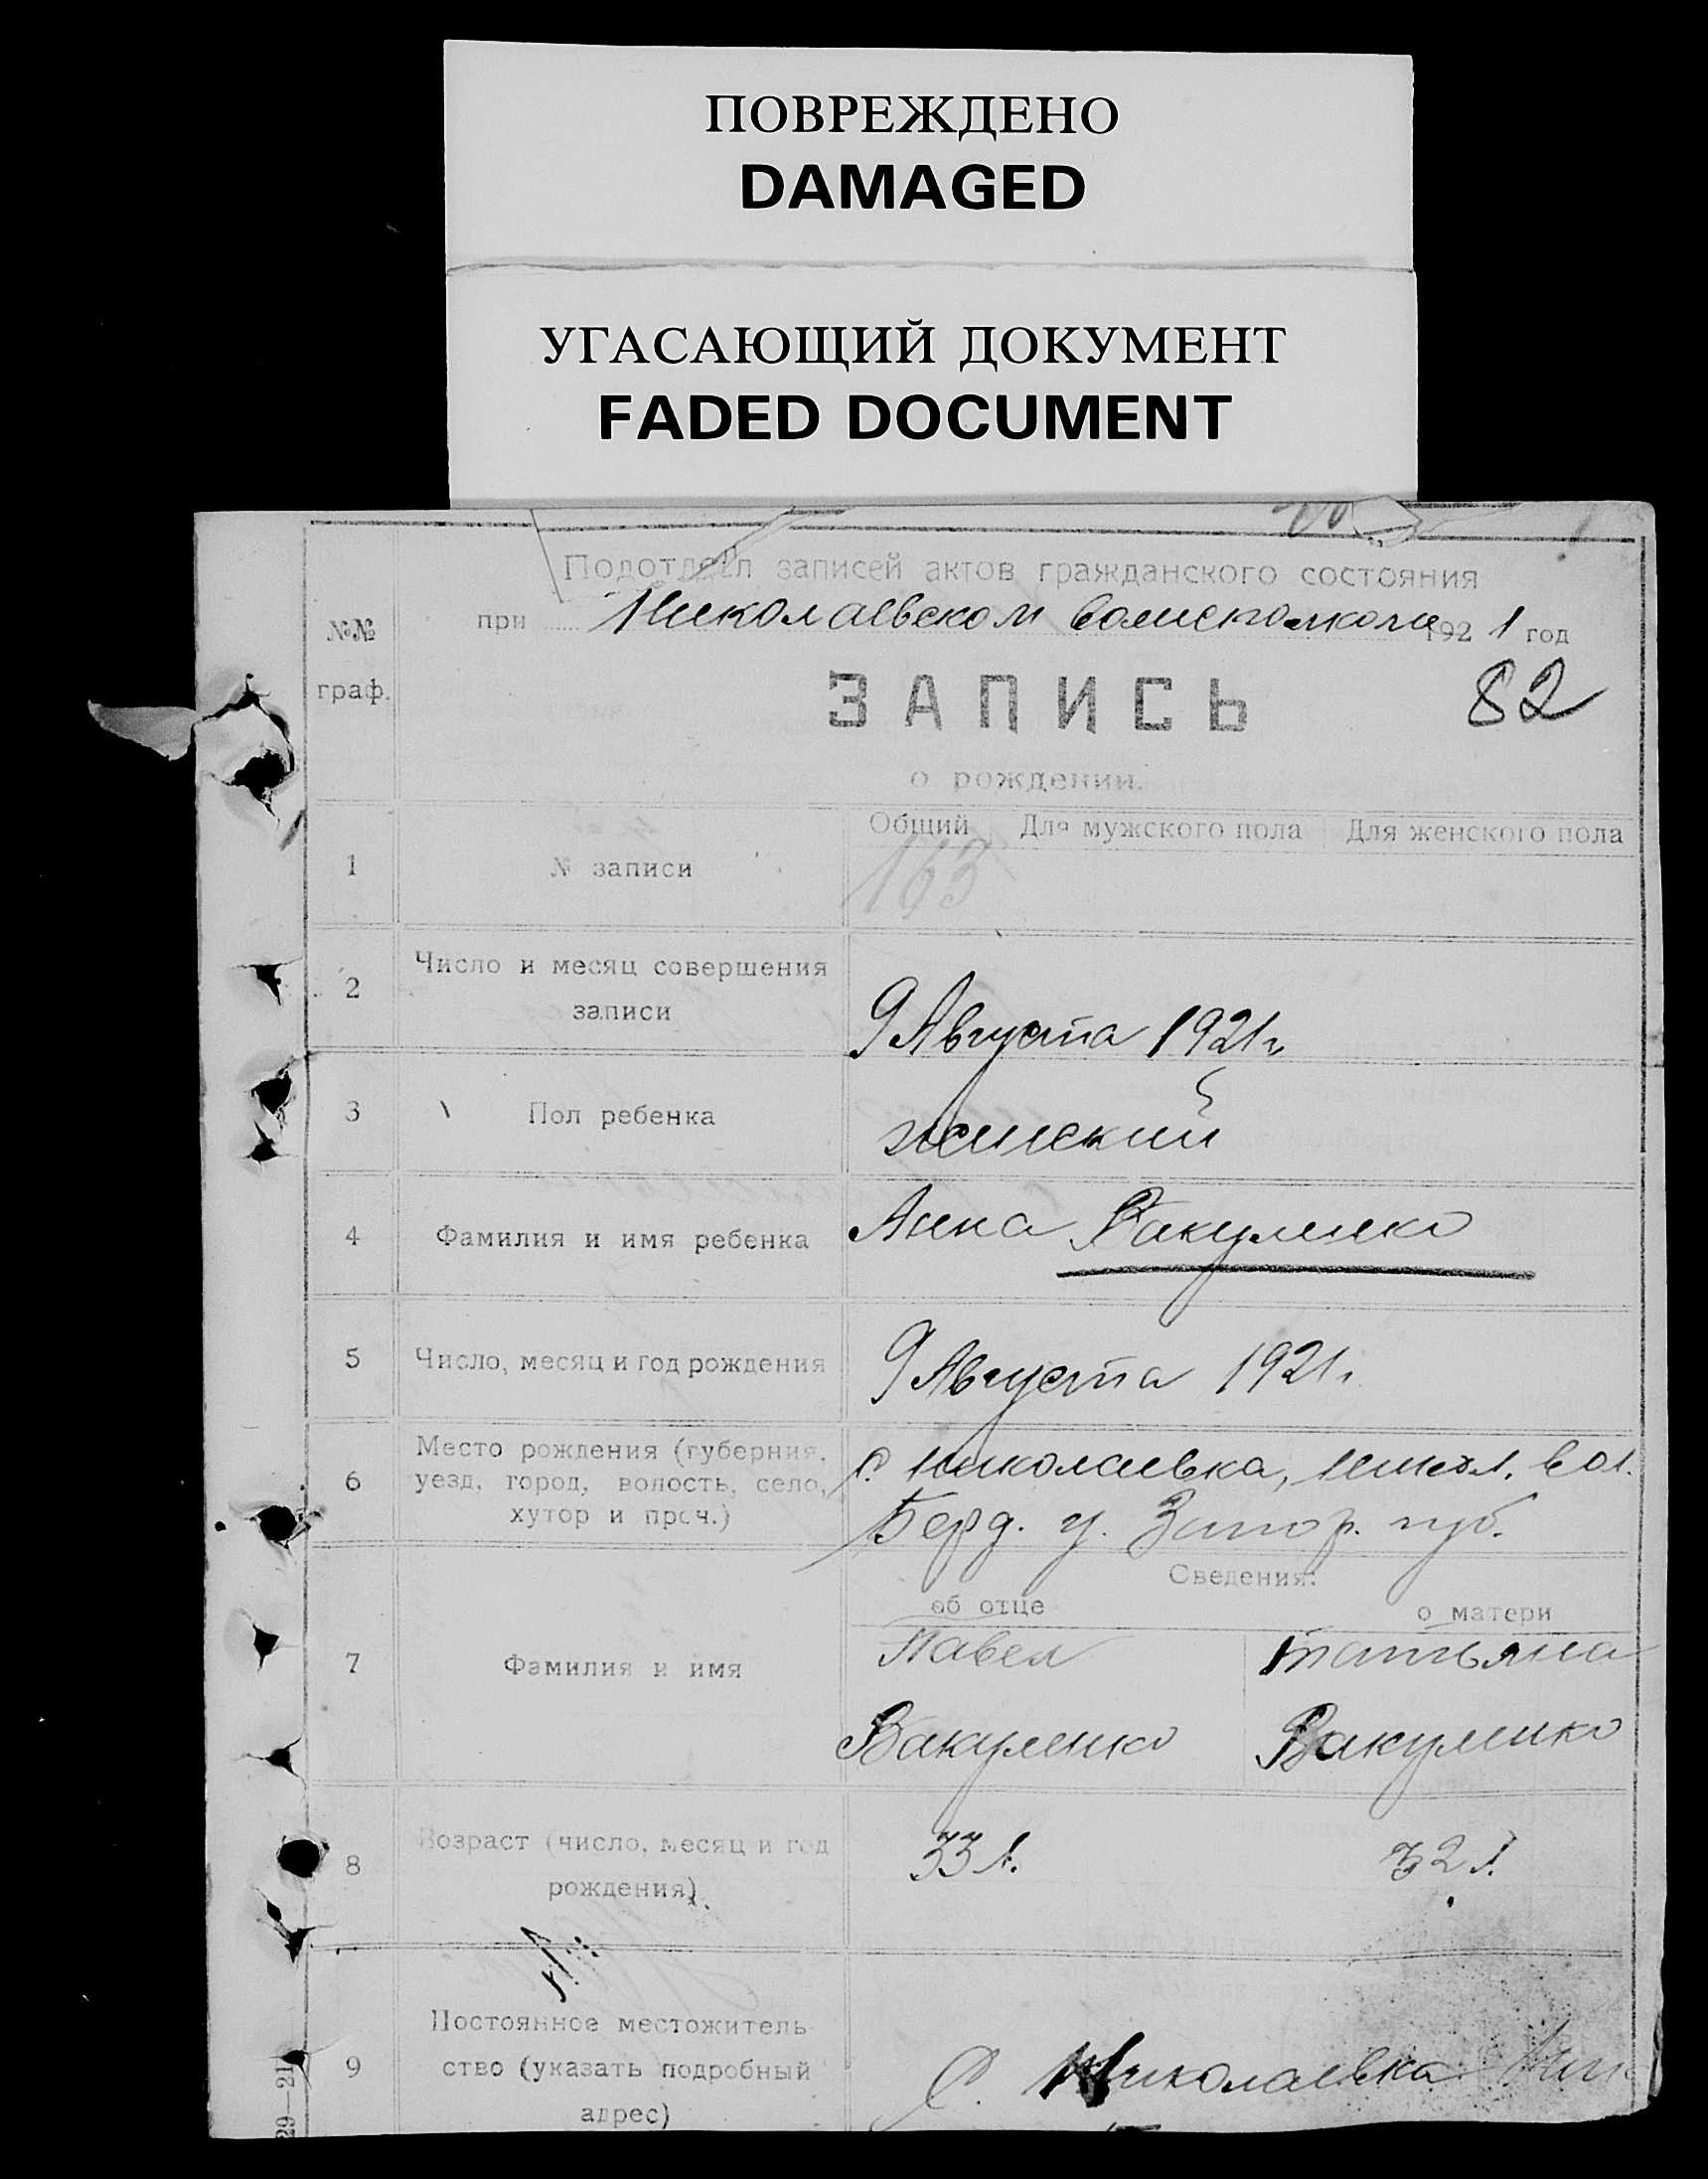 ПОВРЕЖДЕНО
DAMAGED
УГАСАЮЩИЙ ДОКУМЕНТ
FADED DOCUMENT
Подотдел записей актов гражданского состояния
при Николаевском волисполкоме 1921 год
№№
граф.
ЗАПИСЬ
82
о рождении.
Общий Для мужского пола Для женского пола
1 № записи 163
2 Число и месяц совершения
записи
9 Августа 1921 г.
3 Пол ребенка женский
4 Фамилия и имя ребенка Анна Вакуленко
5 Число, месяц и год рождения 9 Августа 1921 г.
6 Место рождения (губерния,
уезд, город, волость, село,
хутор и проч.)
с. Николаевка, вол.
Берд. у. Запор. губ.
Сведения:
об отце о матери
7 Фамилия и имя
Павел Татьяна
Вакуленко Вакуленко
8 Возраст (число, месяц и год
рождения).
33 л. 32 л.
9 Постоянное местожитель-
ство (указать подробный
адрес)
С. Николаевка Ник
29—21